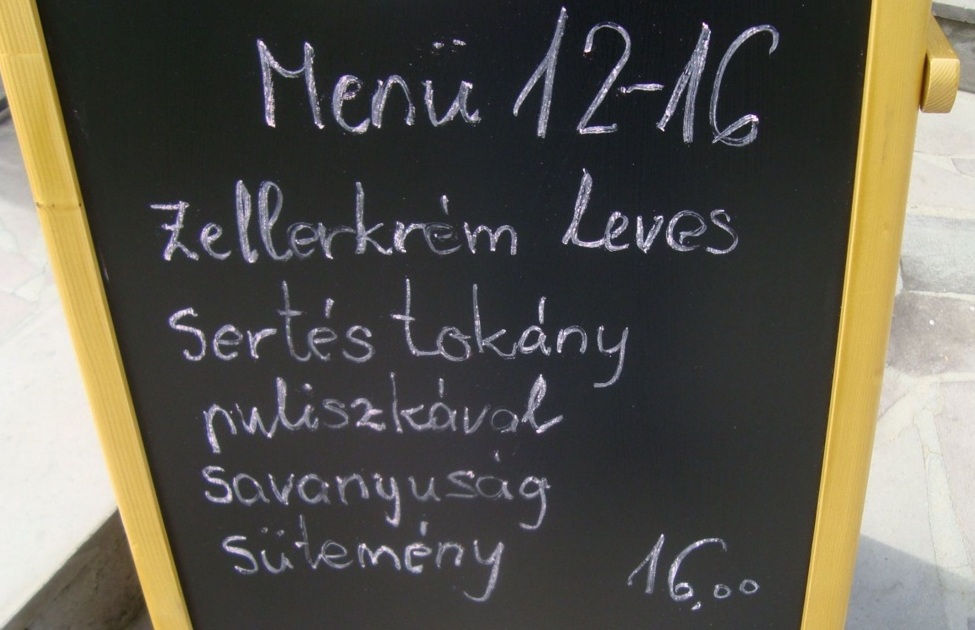 Menü 12-16
Zellerkrém Leves
Sertés tokány
puliszkával
Savanyuság
Sütemény 16,00